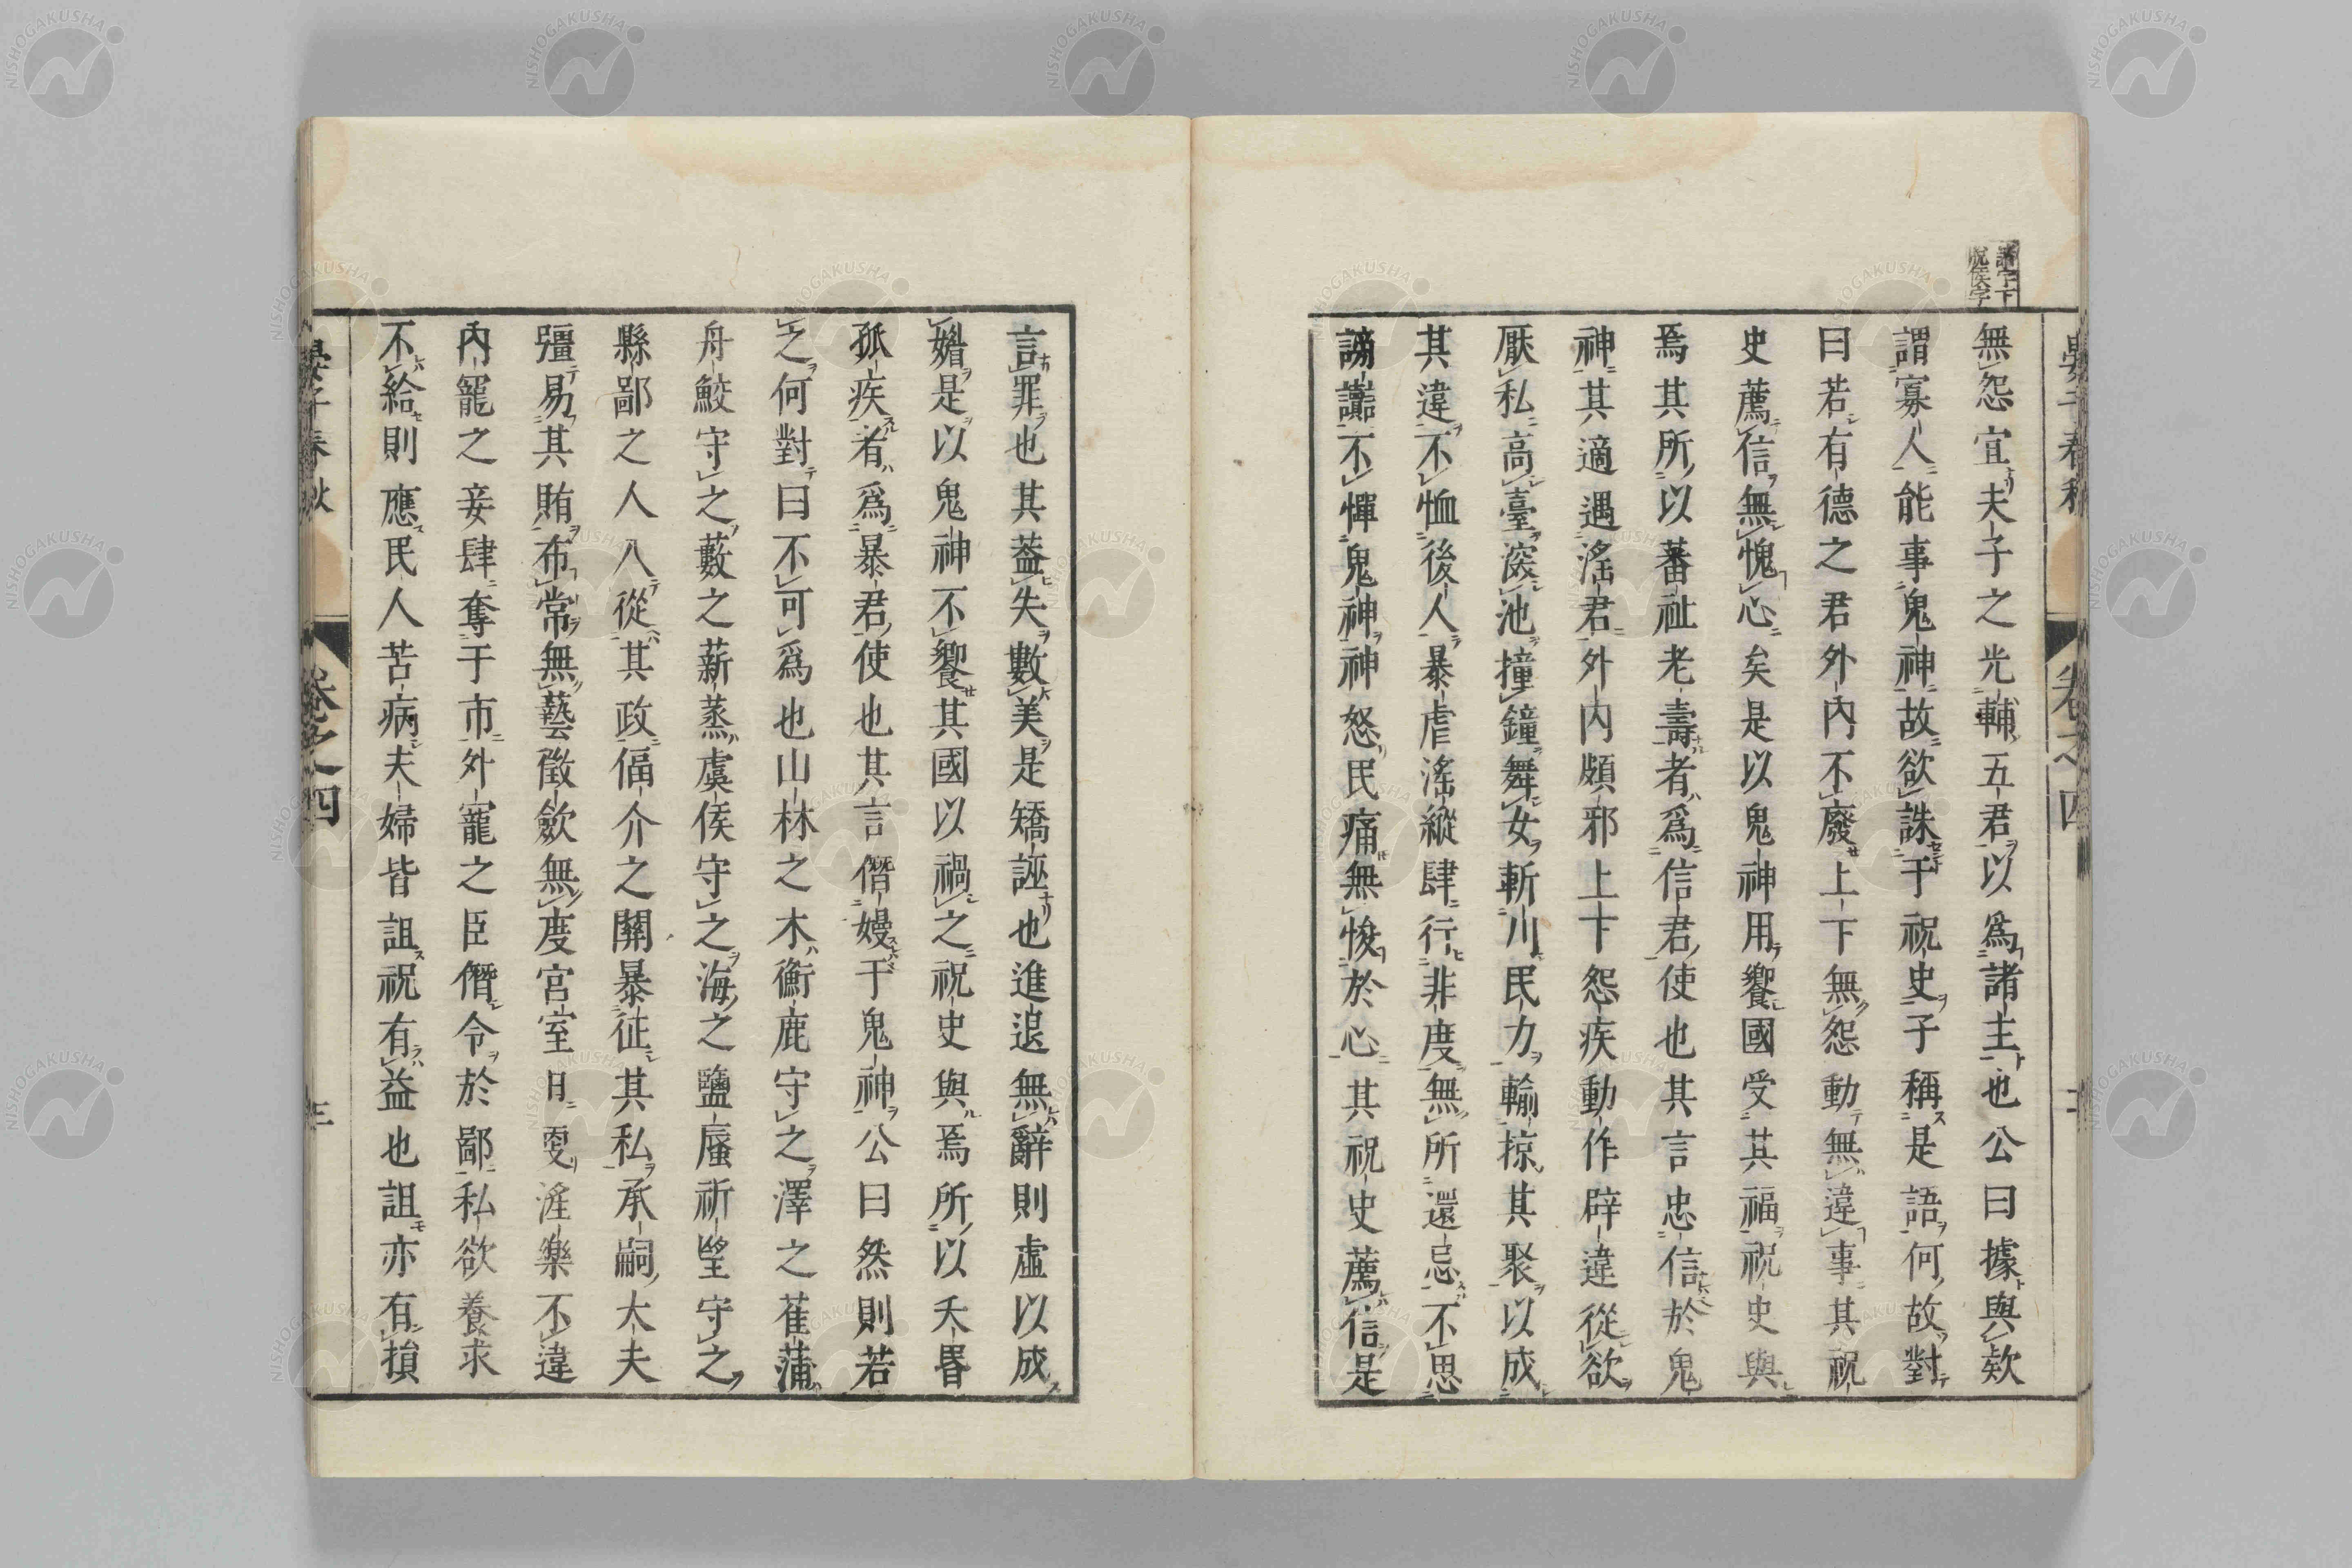 諸字下
脱侯字
無怨宜夫子之光輔五君以爲諸主也公曰據與欵
謂寡人能事鬼神故欲誅于祝史子稱是語何故對
曰若有德之君外內不廢上下無怨動無違事其祝
史薦信無愧心矣是以鬼神用饗國受其福祝史與
焉其所以蕃祉老壽者爲信君使也其言忠信於鬼
神其適遇淫君外內頗邪上下怨疾動作辟違從欲
厭私高臺深池撞鐘舞女斬川民力輸掠其聚以成
其違不恤後人暴虐淫縱肆行非度無所還忌不思
謗讟不憚鬼神神怒民痛無悛於心其祝史薦信是
言罪也其蓋失數美是矯誣也進退無辭則虛以成
媚是以鬼神不饗其國以禍之祝史與焉所以夭昬
孤疾者爲暴君使也其言僭嫚于鬼神公曰然則若
之何對曰不可爲也山林之木衡鹿守之澤之萑蒲
舟鮫守之藪之薪蒸虞侯守之海之鹽蜃祈望守之
縣鄙之人入從其政偪介之關暴征其私承嗣大夫
彊易其賄布常無藝徵斂無度宮室日更淫樂不違
內寵之妾肆奪于市外寵之臣僭令於鄙私欲養求
不給則應民人苦病夫婦皆詛祝有益也詛亦有損
晏子春秋
卷之四
三